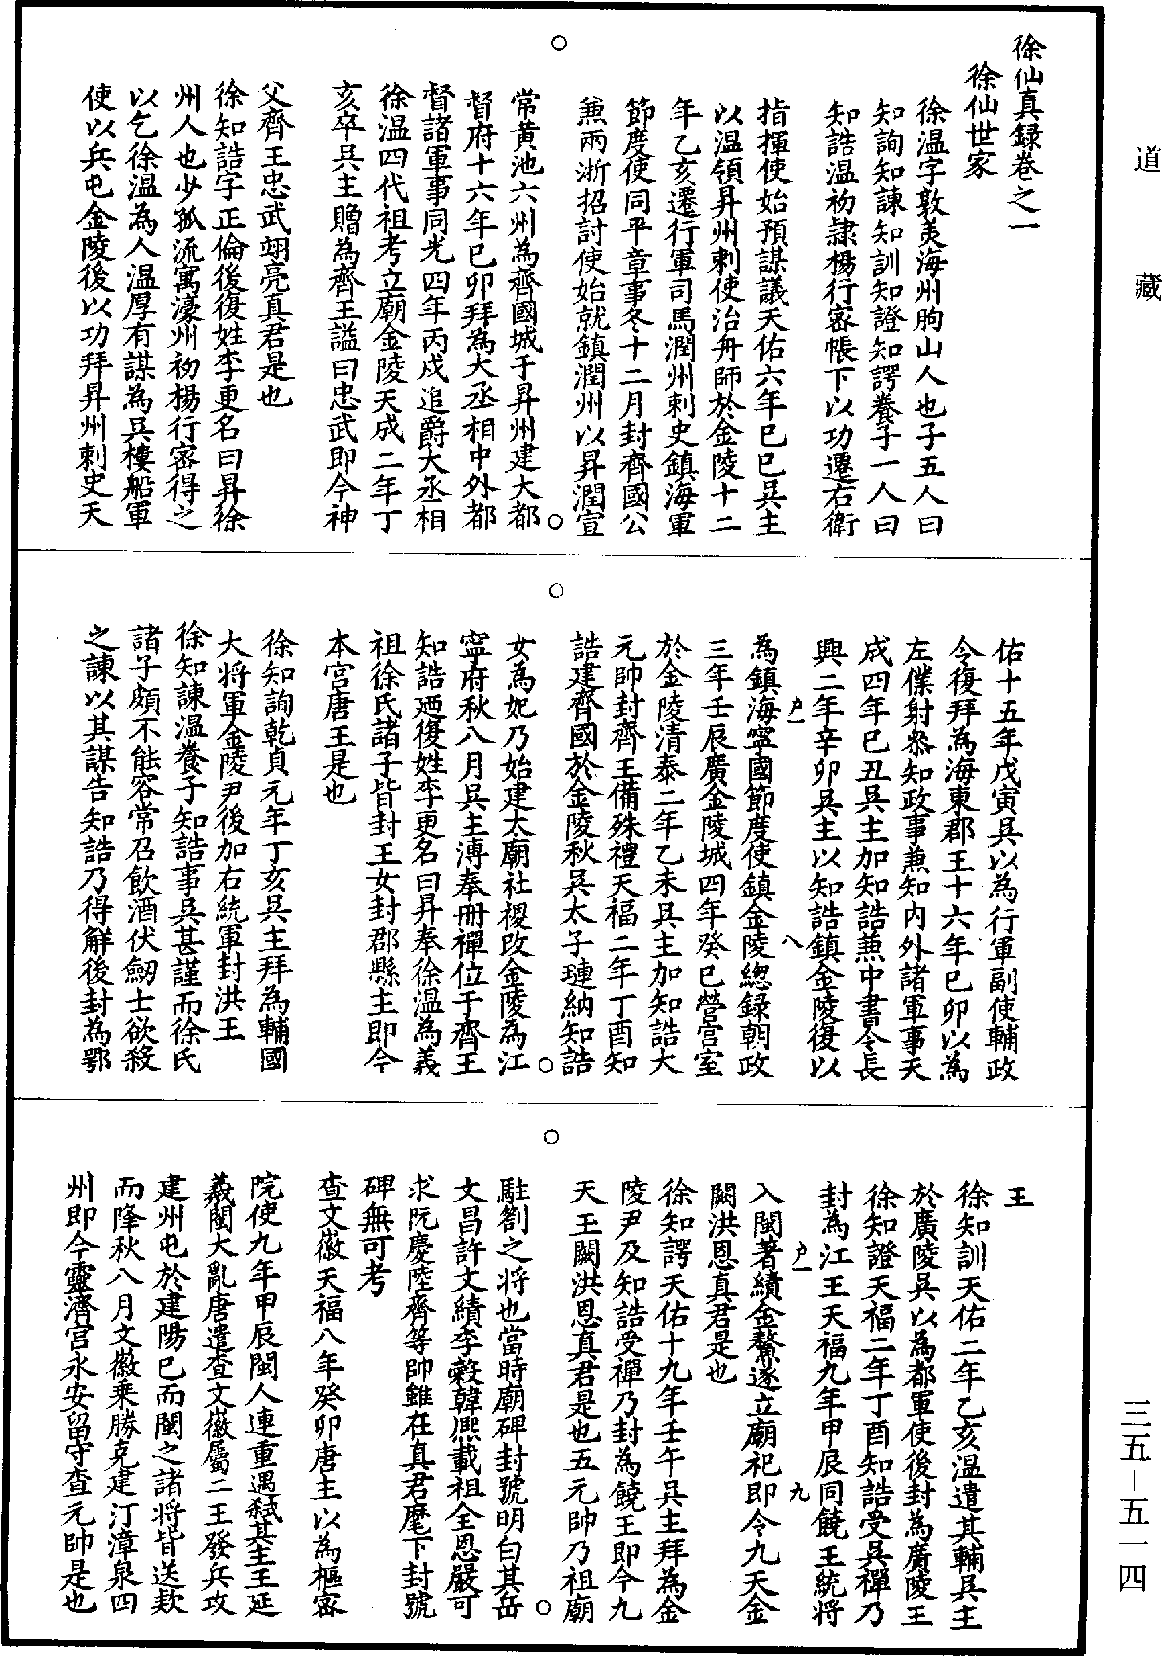 道藏
徐仙真録卷之一
徐仙世家
徐温字敦美海州朐山人也子五人曰
知詢知諫知訓知證知諤養子一人曰
知誥温初隷楊行密帳下以功遷右衛
指揮使始預謀議天佑六年己巳吳主
以温領昇州剌使治舟師於金陵十二
年乙亥遷行軍司馬潤州剌史鎮海軍
節度使同平章事冬十二月封齊國公
兼兩浙招討使始就鎮潤州以昇潤宣
常黄池六州為齊國城于昇州建大都
督府十六年己卯拜為大丞相中外都
督諸軍事同光四年丙戌追爵大丞相
徐温四代祖考立廟金陵天成二年丁
亥卒吳主贈為齊王謚曰忠武即今神
父齊王忠武翊亮真君是也
徐知誥字正倫後復姓李更名曰昇徐
州人也少孤流寓濠州初楊行密得之
以乞徐温為人温厚有謀為吳樓船軍
使以兵屯金陵後以功拜昇州剌史天
佑十五年戊寅吳以為行軍副使輔政
今復拜為海東郡王十六年己卯以為
左僕射叅知政事兼知内外諸軍事天
成四年己丑吳主加知誥兼中書令長
興二年辛卯吳主以知誥鎮金陵復以
為鎮海寧國節度使鎮金陵總録朝政
三年壬辰廣金陵城四年癸巳營宫室
於金陵清泰二年乙未吳主加知誥大
元帥封齊王備殊禮天福二年丁酉知
誥建齊國於金陵秋吳太子璉納知誥
女為妃乃始建太廟社稷改金陵為江
寧府秋八月吳主溥奉冊禪位于齊王
知誥廼復姓李更名曰昇奉徐温為義
祖徐氏諸子皆封王女封郡縣主即今
本宮唐王是也
徐知詢乾貞元年丁亥吳主拜為輔國
大將軍金陵尹後加右統軍封洪王
徐知諫温養子知誥事吳甚謹而徐氏
諸子頗不能容常召飲酒伏劒士欲殺
之諫以其謀告知誥乃得解後封為鄂
王
徐知訓天佑二年乙亥温遣其輔吳主
於廣陵吳以為都軍使後封為廣陵王
徐知證天福二年丁酉知誥受吳禪乃
封為江王天福九年甲辰同饒王統將
入閩著績金鰲遂立廟祀即今九天金
闕洪恩真君是也
徐知諤天佑十九年壬午吳主拜為金
陵尹及知誥受禪乃封為饒王即今九
天玉闕洪恩真君是也五元帥乃祖廟
駐劄之將也當時廟碑封號明白其岳
文昌許文績李榖韓熈載祖全恩嚴可
求阮慶陸齊等帥雖在真君麾下封號
碑無可考
查文徽天福八年癸卯唐主以為樞密
院使九年甲辰閩人連重遇弑其主王延
羲閩大亂唐遣查文徽屬二王發兵攻
建州屯於建陽已而閩之諸將皆送欵
而降秋八月文徽乘勝克建汀漳泉四
州即今靈濟宮永安留守查元帥是也
户一
八
户一
九
三五—五一四